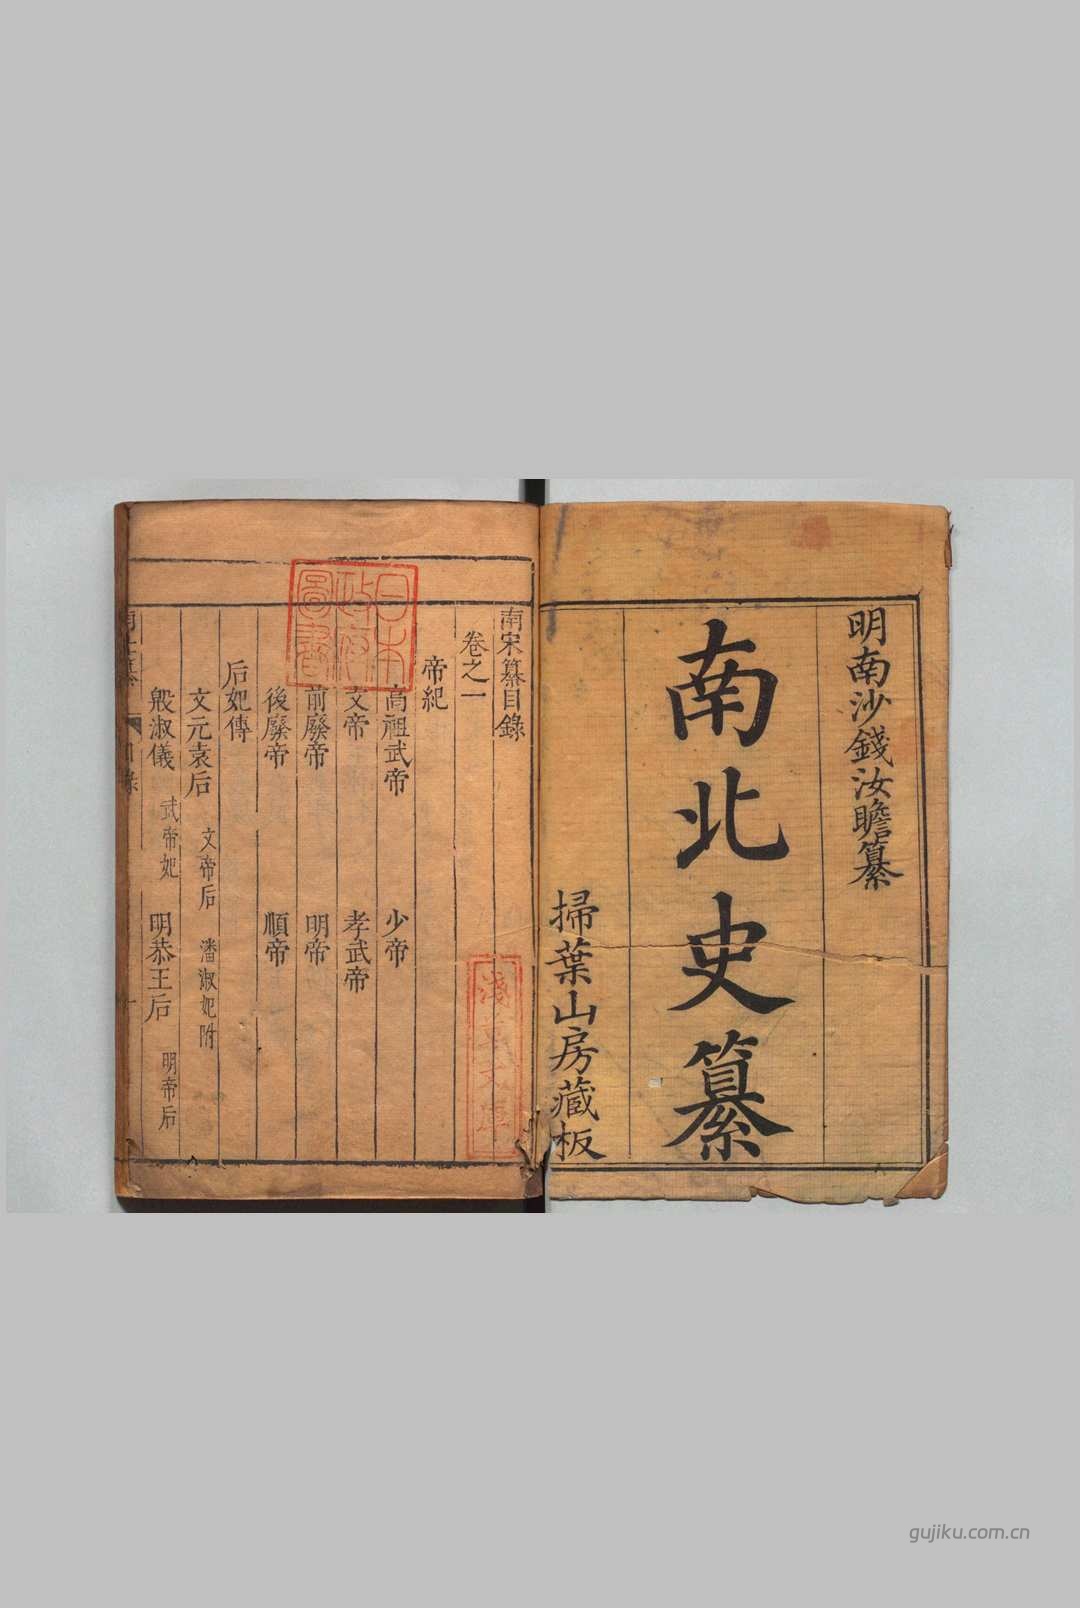 明南沙錢汝瞻纂
南北史纂
掃葉山房藏板
南宋纂目錄
卷之一
帝紀
高祖武帝 少帝
文帝 孝武帝
前廢帝 明帝
後廢帝 順帝
后妃傳
文元袁后 文帝后 潘淑妃附
殷淑儀 武帝妃 明恭王后 明帝后
日本
政府
圖書
淺草文庫
gujiku.com.cn